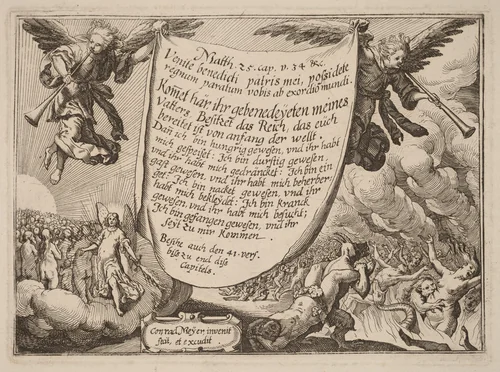 Matth. 25. cap. v. 34 &c.
Venite benedicti patris mei, possidete
regnum paratum vobis ab exordio mundi.
Komet här, ihr gebenedeÿeten meines
Vatters, Besitzet das Reich, das euch
bereitet ist von anfang der wellt.
Dañ ich bin hungrig gewesen, vnd ihr habt
mich gespeiset: Ich bin durstig gewesen,
vnd ihr habt mich gedrencket: Ich bin ein
gast gewesen, vnd ihr habt mich beherber-
get: Ich bin nacket gewesen, vnd ihr
habt mich bekleidet: Ich bin kranck
gewesen, vnd ihr habt mich besucht;
Ich bin gefangen gewesen, vnd ihr
seÿt zu mir kommen.
Besihe auch den 41. vers.
biss zu end diss
Capitels.
Conrad. Meÿer invenit
fecit, et excudit